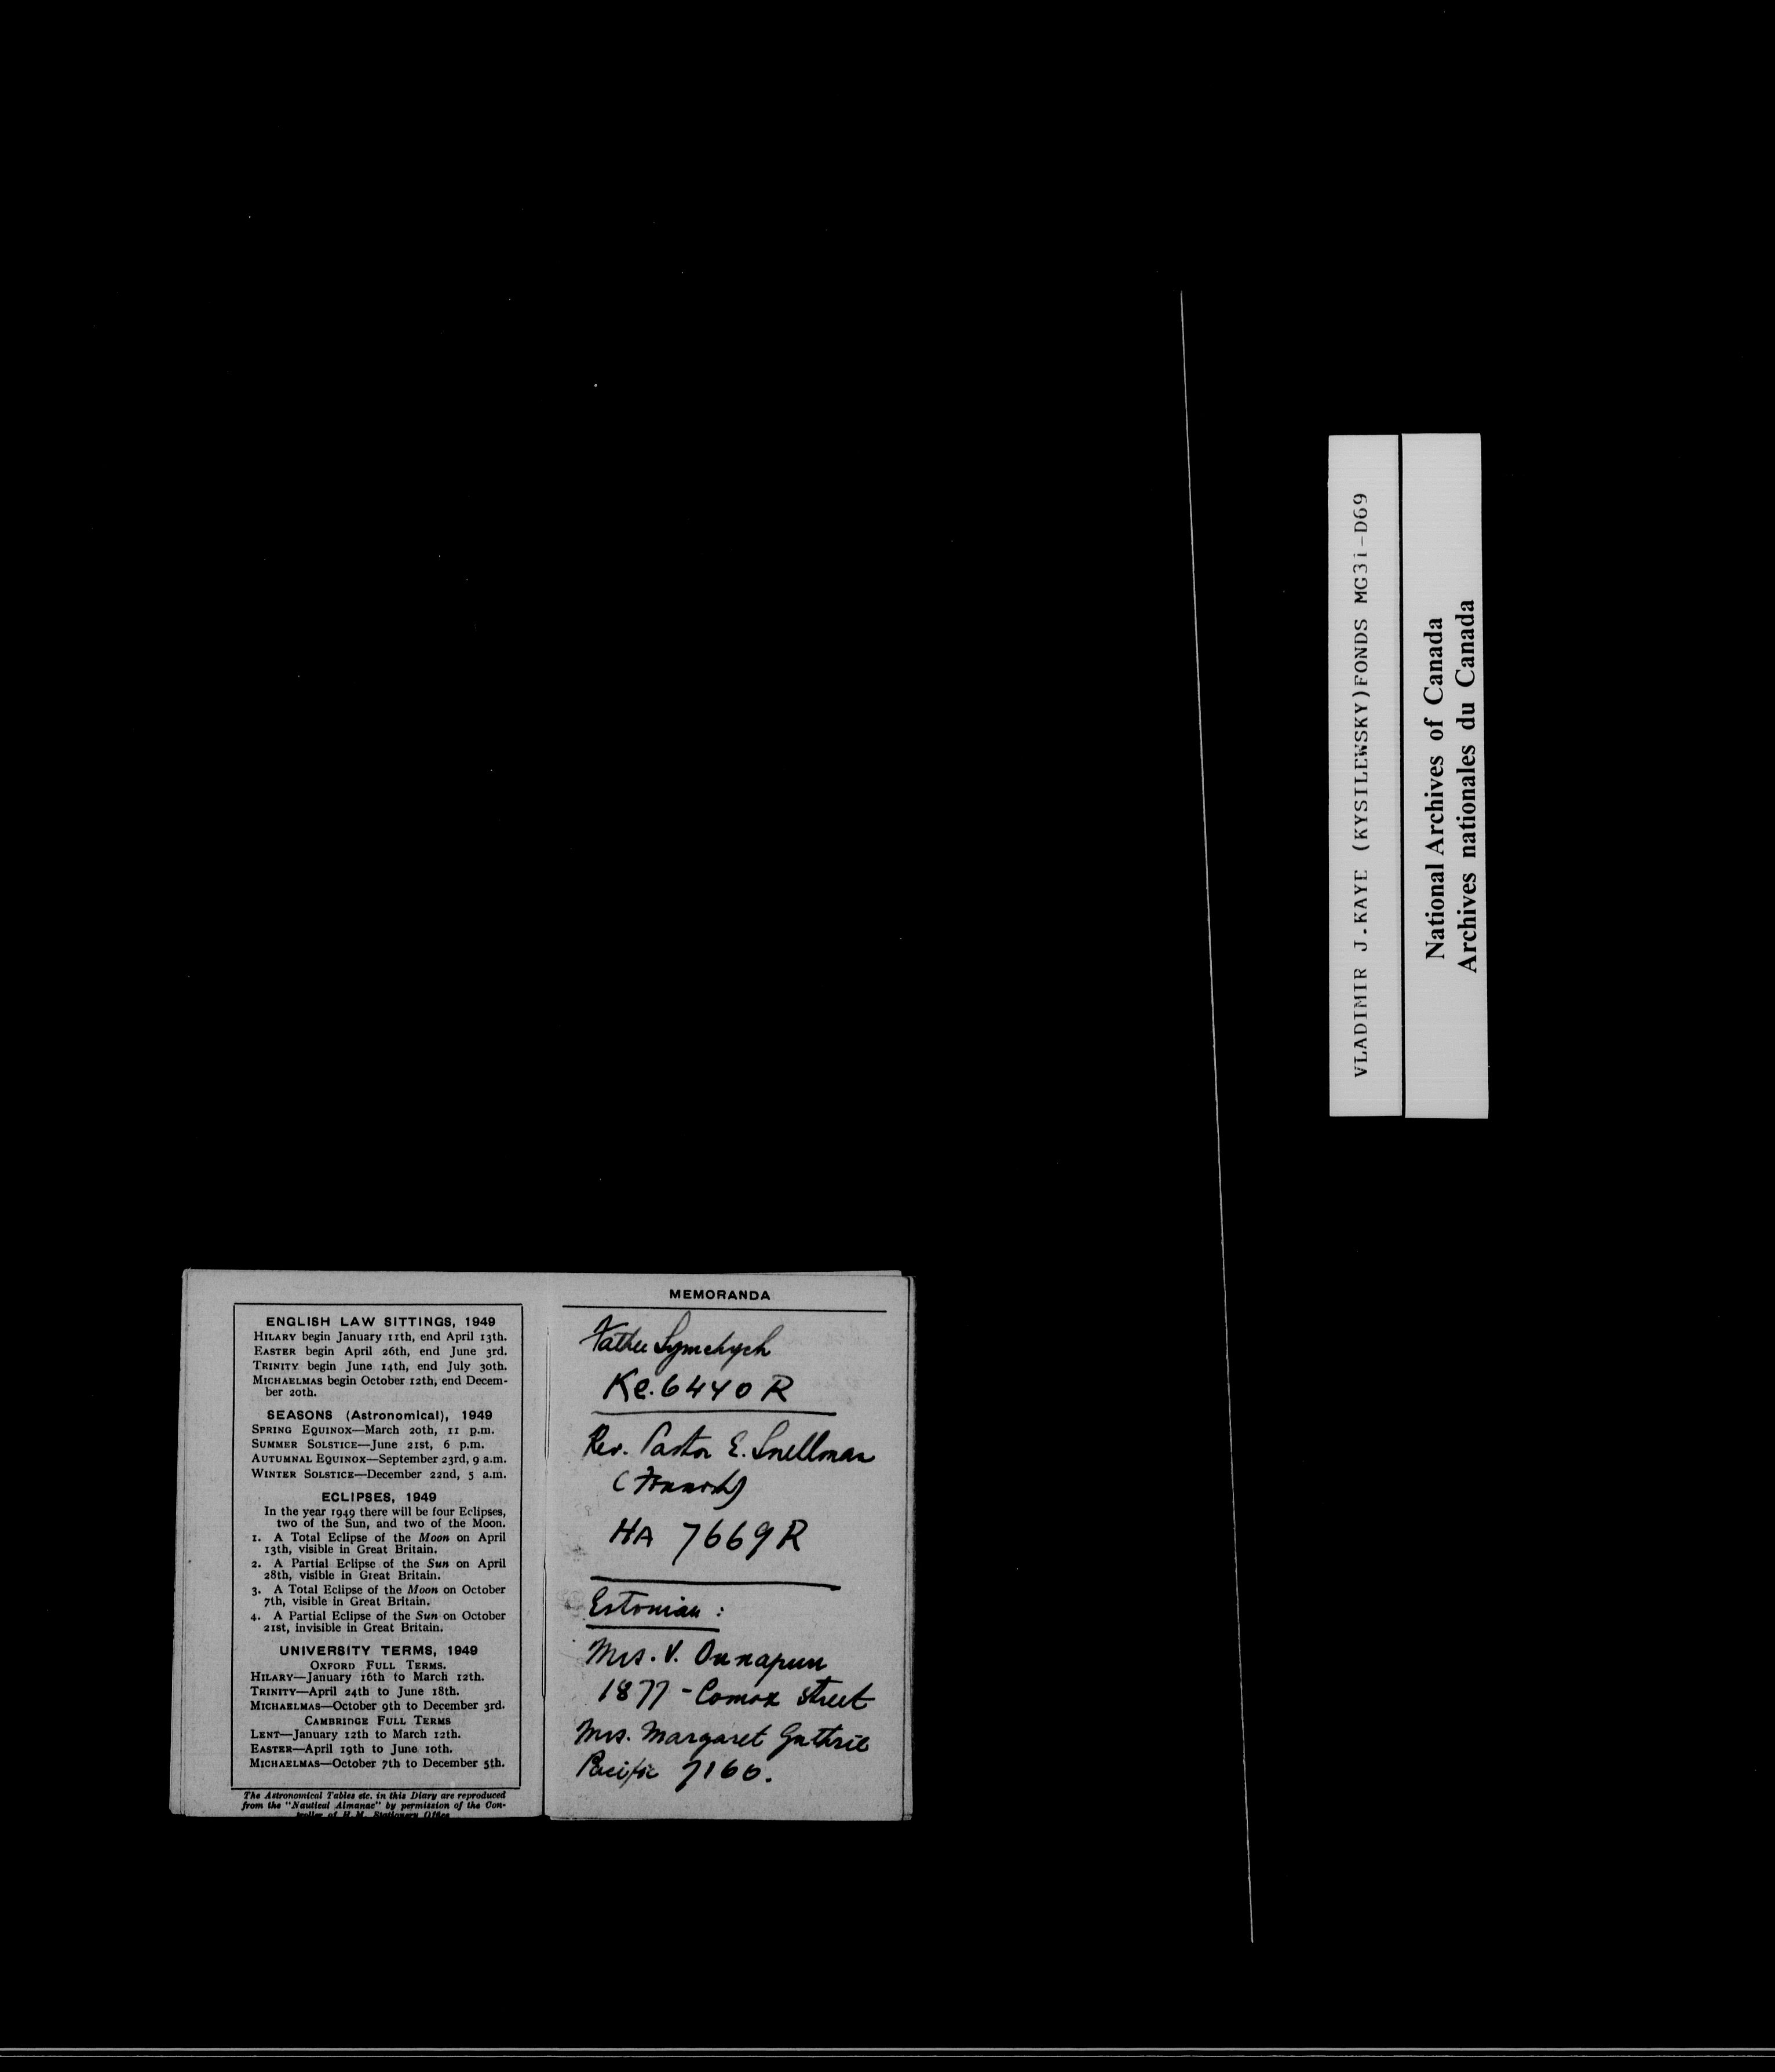 ENGLISH LAW SITTINGS, 1949
HILARY begin January 11th, end April 13th.
EASTER begin April 26th, end June 3rd.
TRINITY begin June 14th, end July 30th.
MICHAELMAS begin October 12th, end Decem-
ber 20th.
SEASONS (Astronomical), 1949
SPRING EQUINOX—March 20th, 11 p.m.
SUMMER SOLSTICE—June 21st, 6 p.m.
AUTUMNAL EQUINOX—September 23rd, 9 a.m.
WINTER SOLSTICE—December 22nd, 5 a.m.
ECLIPSES, 1949
In the year 1949 there will be four Eclipses,
two of the Sun, and two of the Moon.
1. A Total Eclipse of the Moon on April
13th, visible in Great Britain.
2. A Partial Eclipse of the Sun on April
28th, visible in Great Britain.
3. A Total Eclipse of the Moon on October
7th, visible in Great Britain.
4. A Partial Eclipse of the Sun on October
21st, invisible in Great Britain.
UNIVERSITY TERMS, 1949
OXFORD FULL TERMS.
HILARY—January 16th to March 12th.
TRINITY—April 24th to June 18th.
MICHAELMAS—October 9th to December 3rd.
CAMBRIDGE FULL TERMS
LENT—January 12th to March 12th.
EASTER—April 19th to June 10th.
MICHAELMAS—October 7th to December 5th.
The Astronomical Tables etc. in this Diary are reproduced
from the "Nautical Almanac" by permission of the Con-
troller of H.M. Stationery Office
MEMORANDA
Father Symchych
Ke. 6440 R
Rev. Pastor E. Snellman
(Finnish)
HA 7669 R
Estonian :
Mrs. V. Onnapuu
1877 - Comox Street
Mrs. Margaret Guthrie
Pacific 7166.
VLADIMIR J.KAYE (KYSILEWSKY)FONDS MG31-D69
National Archives of Canada
Archives nationales du Canada